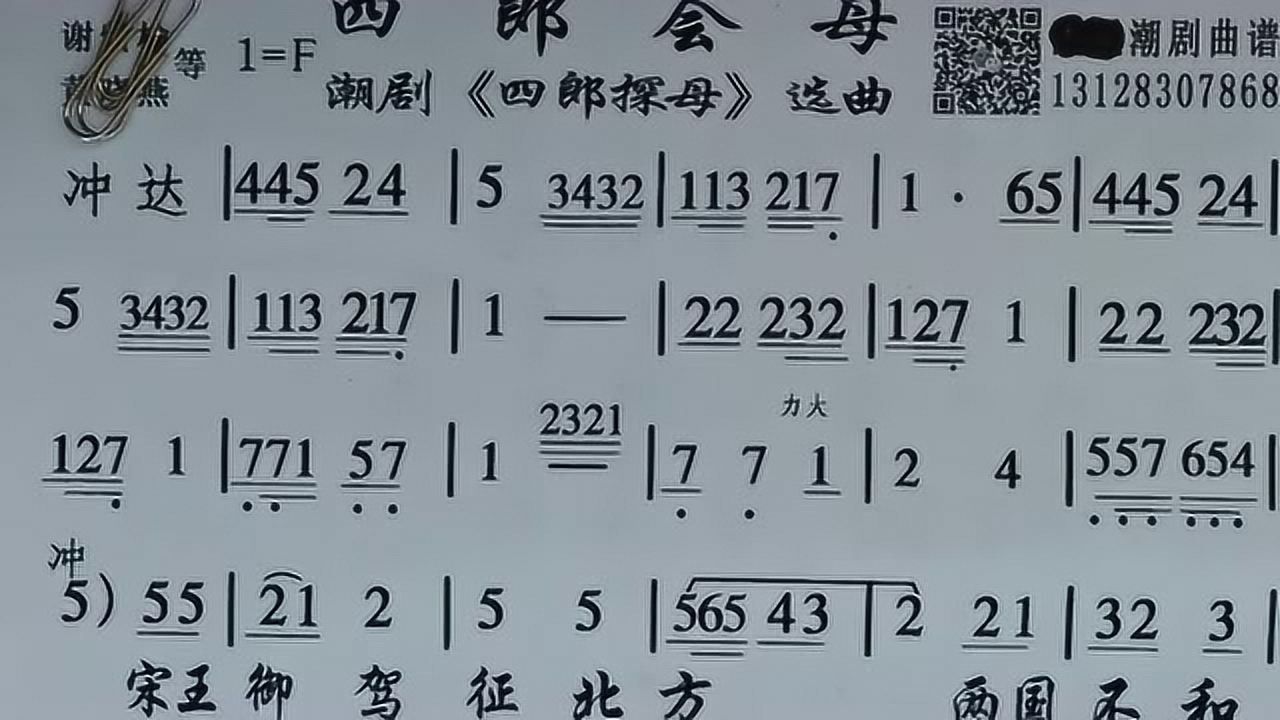 四郎会母
谢 等 1=F 潮剧曲谱
燕 潮剧《四郎探母》选曲 13128307868
冲 达 | 445 24 | 5 3432 | 113 217 | 1 · 65 | 445 24 |
5 3432 | 113 217 | 1 — | 22 232 | 127 1 | 22 232 |
力大
127 1 | 771 57 | 1 2321 | 7 7 1 | 2 4 | 557 654 |
冲
5) 55 | 21 2 | 5 5 | 565 43 | 2 21 | 32 3 |
宋王 御 驾 征 北 方 两国 不 和